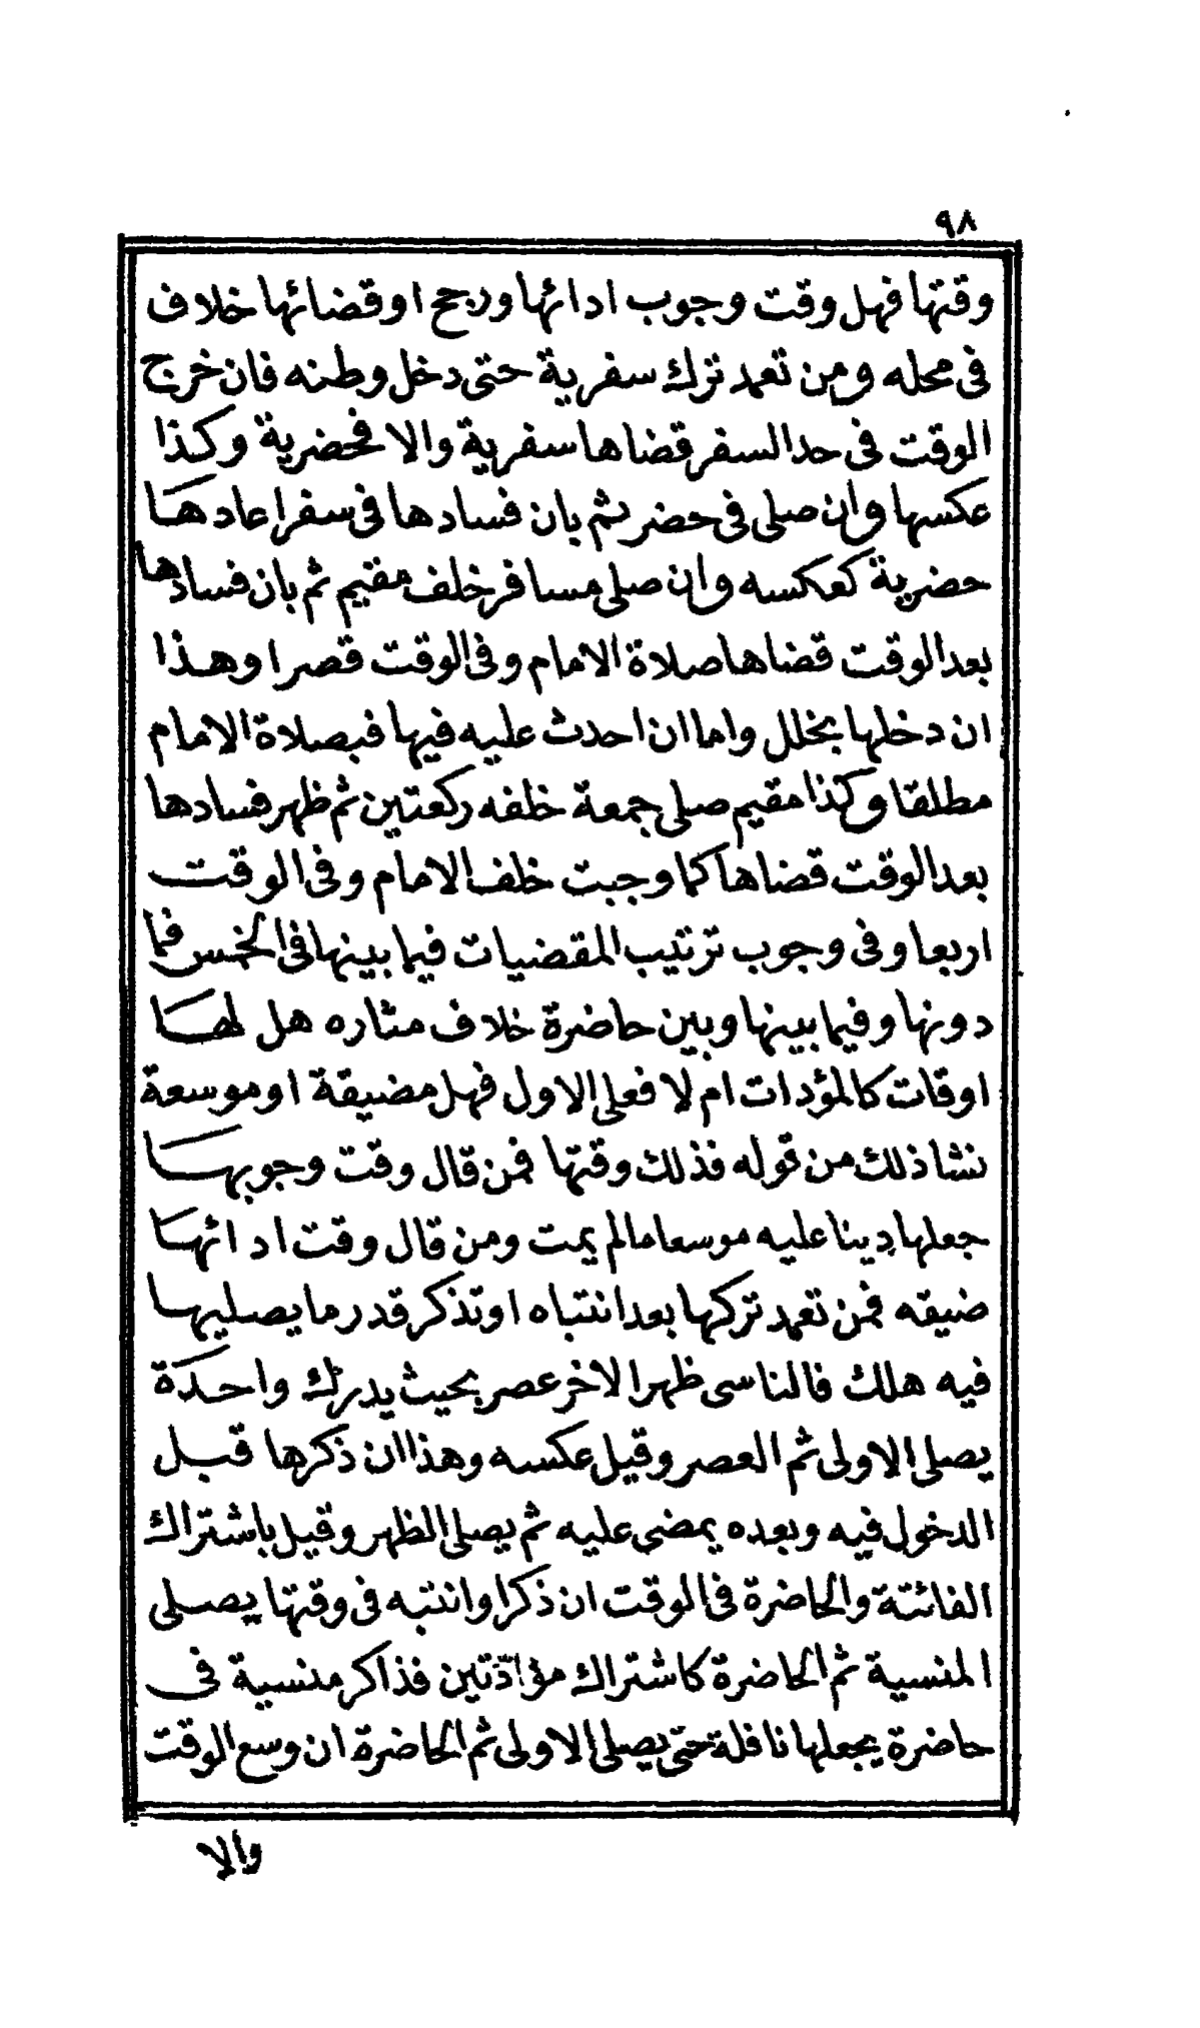 ٩٨
وقتها فهل وقت وجوب ادائها ورجح او قضائها خلاف
فى محله ومن تعمد ترك سفرية حتى دخل وطنه فان خرج
الوقت فى حد السفر قضاها سفرية والا فحضرية وكذا
عكسها وان صلى فى حضر ثم بان فسادها فى سفر اعادها
حضرية كعكسه وان صلى مسافر خلف مقيم ثم بان فسادها
بعد الوقت قضاها صلاة الامام وفى الوقت قصرا وهذا
ان دخلها بخلل واما ان احدث عليه فيها فبصلاة الامام
مطلقا وكذا مقيم صلى جمعة خلفه ركعتين ثم ظهر فسادها
بعد الوقت قضاها كما وجبت خلف الامام وفى الوقت
اربعا وفى وجوب ترتيب المقضيات فيما بينها فى الخمس فما
دونها وفيما بينها وبين حاضرة خلاف مثاره هل لها
اوقات كالمؤدات ام لا فعلى الاول فهل مضيقة او موسعة
نشا ذلك من قوله فذلك وقتها فمن قال وقت وجوبها
جعلها دينا عليه موسعا مالم يمت ومن قال وقت ادائها
ضيقه فمن تعمد تركها بعد انتباه او تذكر قدر ما يصليها
فيه هلك فالناسى ظهرا لاخر عصر بحيث يدرك واحدة
يصلى الاولى ثم العصر وقيل عكسه وهذا ان ذكرها قبل
الدخول فيه وبعده يمضى عليه ثم يصلى الظهر وقيل باشتراك
الفائتة والحاضرة فى الوقت ان ذكر او انتبه فى وقتها يصلى
المنسية ثم الحاضرة كاشتراك مؤادّتين فذاكر منسية فى
حاضرة يجعلها نافلة حتى يصلى الاولى ثم الحاضرة ان وسع الوقت
والا